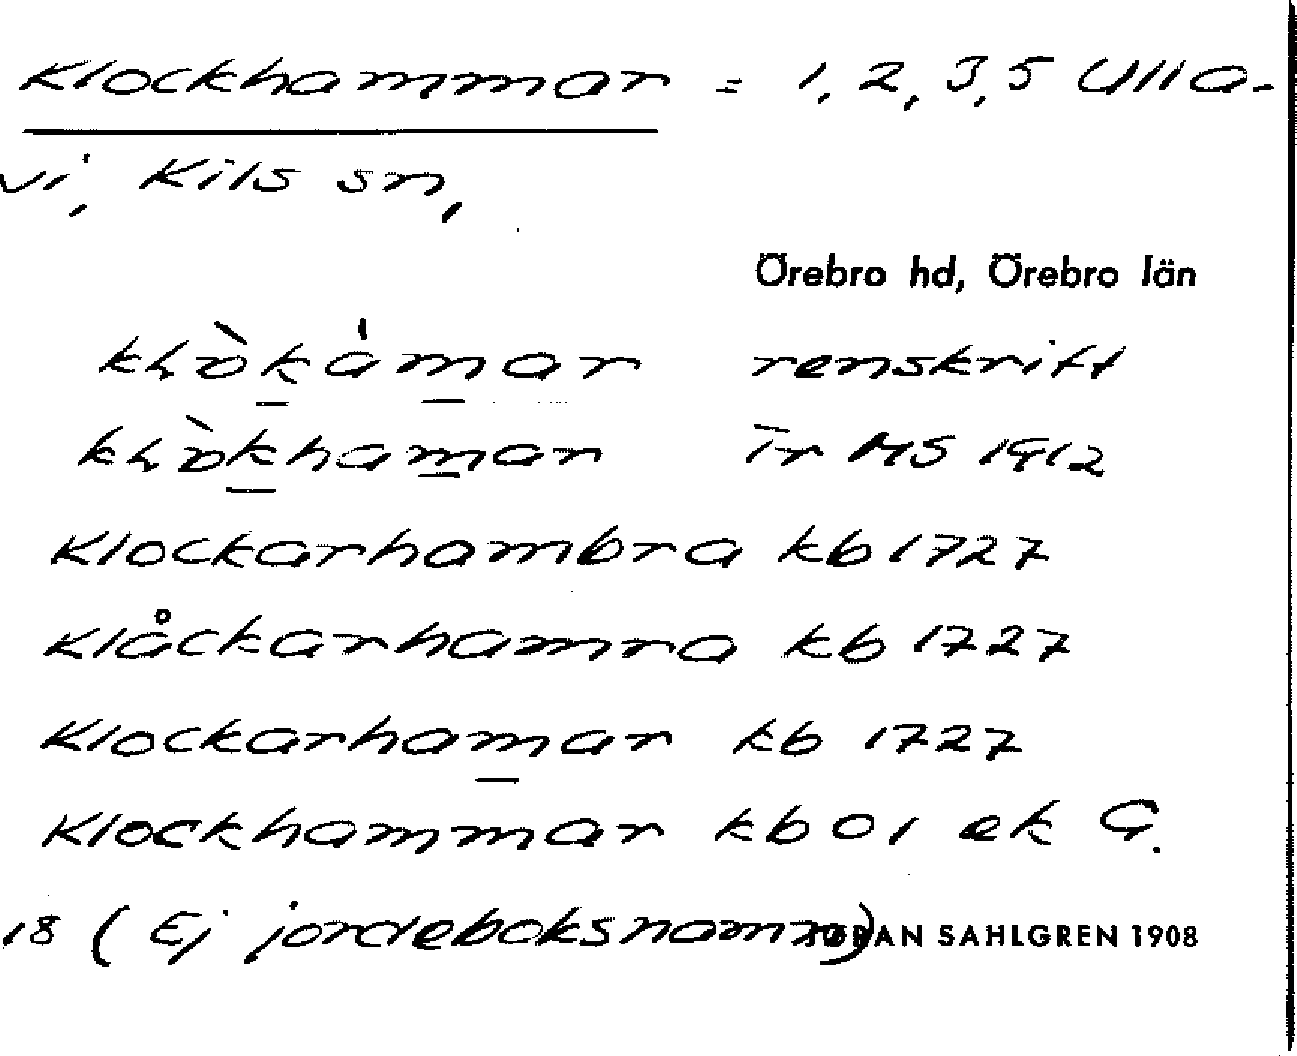 Klockhammar = 1, 2, 3, 5 Ulla-
vi, Kils sn,
Örebro hd, Örebro län
renskrift
MS 1912
Klockarhambra kb 1727
Klåckarhamra kb 1727
Klockarhamar kb 1727
Klockhammar kb 01 ek G.
18 (Ej jordeboksnamn) JÖRAN SAHLGREN 1908